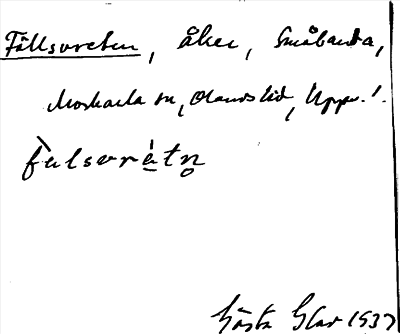 Fällsvreten, åker, Småbanka,
Morkarla sn, Olands hd, Upps. l.
fälsvrètn
Gösta Glas 1937